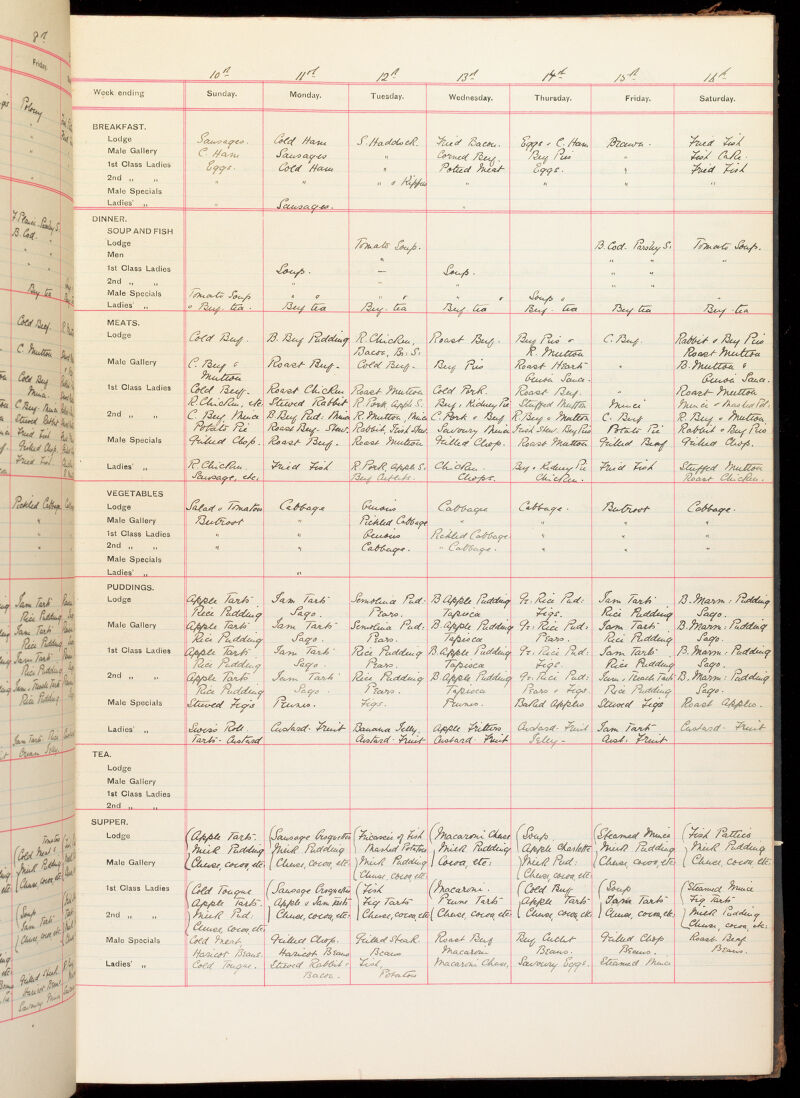 8th
Friday.
10th 11th 12th 13th 14th 15th 16th
Week ending Sunday. Monday. Tuesday. Wednesday. Thursday. Friday. Saturday.
BREAKFAST.
Lodge Sausages. Cold Ham S. Haddock. Fried Bacon. Eggs & C. Ham Brawn. Fried Fish
Male Gallery C. Ham Sausages " Corned Beef. Beef Pies " Fish Cake.
1st Class Ladies Eggs. Cold Ham " Potted Meat Eggs. " Fried Fish
2nd " " " " " & Kippers " " " "
Male Specials
Ladies' " " Sausages. "
DINNER.
SOUP AND FISH
Lodge Tomato Soup. B. Cod. Parsley S. Tomato Soup.
Men " " " "
1st Class Ladies Soup. — Soup. " "
2nd " " " " " " "
Male Specials Tomato Soup " " " " Soup
Ladies' " Beef tea. Beef tea Beef tea Beef tea Beef tea Beef tea Beef tea
MEATS.
Lodge Cold Beef. B. Beef Pudding R. Chicken, Roast Beef. Beef Pies & C. Beef. Rabbit & Beef Pies
Bacon, Br. S. R. Mutton Roast Mutton
Male Gallery C. Beef & Roast Beef. Cold Beef. Beef Pies Roast Heart " B. Mutton &
Mutton Onion Sauce. Onion Sauce.
1st Class Ladies Cold Beef. Roast Chicken Roast Mutton Cold Pork. Roast Beef. " Roast Mutton
R. Chicken, etc. Stewed Rabbit R. Pork Apple S. Beef & Kidney Pie Stuffed Mutton Mince
2nd " " C. Beef Mince B. Beef Pud. Mince R. Mutton Mince C. Pork & Beef R. Beef & Mutton C. Beef R. Beef & Mutton
Potato Pie Roast Beef. Stew. Rabbit, Irish Stew. Savoury Mince Irish Stew. Beef Pies Potato Pie Rabbit & Beef Pies
Male Specials Grilled Chop. Roast Beef. Roast Mutton Grilled Chop. Roast Mutton Grilled Beef Grilled Chop.
Ladies' " R. Chicken Fried Fish R. Pork, Apple S. Chicken. Beef & Kidney Pie Fried Fish Stuffed Mutton
Sausage, etc. Beef Cutlets. Chops. Chicken. Roast Chicken.
VEGETABLES
Lodge Salad & Tomatoes Cabbage Onions Cabbages Cabbage. Beetroot Cabbage.
Male Gallery Beetroot " Pickled Cabbage " " " "
1st Class Ladies " " Onions Pickled Cabbage " " "
2nd " " " " Cabbage. " Cabbage. " " "
Male Specials
Ladies' " "
PUDDINGS.
Lodge Apple Tarts Jam Tarts Semolina Pud: B. Apple Pudding Gr: Rice Pud: Jam Tarts B. Marm: Pudding
Rice Pudding Sago. Pears. Tapioca Figs. Rice Pudding Sago.
Male Gallery Apple Tarts Jam Tarts Semolina Pud: B. Apple Pudding Gr: Rice Pud: Jam Tarts B. Marm: Pudding
Rice Pudding Sago. Pears. Tapioca Pears. Rice Pudding Sago.
1st Class Ladies Apple Tarts Jam Tarts Rice Pudding B. Apple Pudding Gr: Rice Pud: Jam Tarts B. Marm: Pudding
Rice Pudding Sago. Pears. Tapioca Figs. Rice Pudding Sago.
2nd " " Apple Tarts Jam Tarts Rice Pudding B. Apple Pudding Gr: Rice Pud: Jam & Treacle Tart B. Marm: Pudding
Rice Pudding Sago. Pears. Tapioca Pears & Figs. Rice Pudding Sago.
Male Specials Stewed Figs Prunes. Figs. Prunes. Baked Apples Stewed Figs Roast Apples.
Ladies' " Swiss Roll. Custard. Fruit Banana Jelly. Apple Fritters Custard. Fruit Jam Tart Custard. Fruit
Tarts. Custard Custard. Fruit Custard Fruit Jelly - Cust: Fruit
TEA.
Lodge
Male Gallery
1st Class Ladies
2nd " "
SUPPER.
Lodge Apple Tarts Sausage Croquettes Fricassée of Fish Macaroni Cheese Soup Steamed Mince Fish Patties
Milk Pudding Milk Pudding Mashed Potatoes Milk Pudding Apple Charlotte Milk Pudding Milk Pudding
Male Gallery Cheese, cocoa, etc: Cheese, cocoa, etc: Milk Pudding Cocoa, etc: Milk Pud: Cheese, cocoa, etc: Cheese, cocoa, etc:
Cheese, cocoa, etc: Cheese, cocoa, etc:
1st Class Ladies Cold Tongue Sausage Croquettes Fish Macaroni. Cold Beef Soup Steamed Mince
Apple Tarts. Apple & Jam Tarts Fig Tarts Prune Tarts Apple Tarts Jam Tarts Fig Tarts
2nd " " Milk Pud: Cheese, cocoa, etc: Cheese, cocoa, etc: Cheese, cocoa, etc: Cheese, cocoa, etc: Cheese, cocoa, etc: Milk Pudding
Cheese, cocoa, etc: Cheese, cocoa, etc:
Male Specials Cold Meat, Grilled Chop. Grilled Steak. Roast Beef Beef Cutlet Grilled Chop Roast Beef
Haricot Beans. Haricot Beans Beans Macaroni Beans. Beans. Beans.
Ladies' " Cold Tongue. Stewed Rabbit & Fish. Macaroni Cheese, Savoury Eggs. Steamed Mince
Bacon. Potatoes